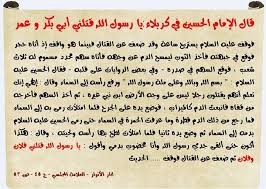 قال الإمام الحسين في كربلاء يا رسول الله قتلني أبي بكر و عمر
فوقف عليه السلام يستريح ساعة وقد ضعف عن القتال فبينما هو واقف إذ أتاه حجر
فوقع في جبهته فأخذ الثوب ليمسح الدم عن وجهه فأتاه سهم محدد مسموم له ثلاث
شعب ، فوقع السهم في صدره - وفي بعض الروايات على قلبه - فقال الحسين عليه
السلام : بسم الله وبالله وعلى ملة رسول الله ورفع رأسه إلى السماء وقال : إلهي
إنك تعلم أنهم يقتلون رجلا ليس على وجه الأرض ابن نبي غيره ، ثم أخذ السهم
فأخرجه من قفاه فانبعث الدم كالميزاب ، فوضع يده على الجرح فلما امتلأت رمى
به إلى السماء ثم وضع يده ثانيا فلما امتلأت لطخ بها رأسه ولحيته ، وقال : هكذا
أكون حتى ألقى جدي رسول الله وأنا مخضوب بدمي وأقول : يا رسول الله قتلني فلان
وفلان ثم ضعف عن القتال فوقف ..... الحديث
بحار الأنوار - العلامة المجلسي - ج ٤٥ - ص ٥٣